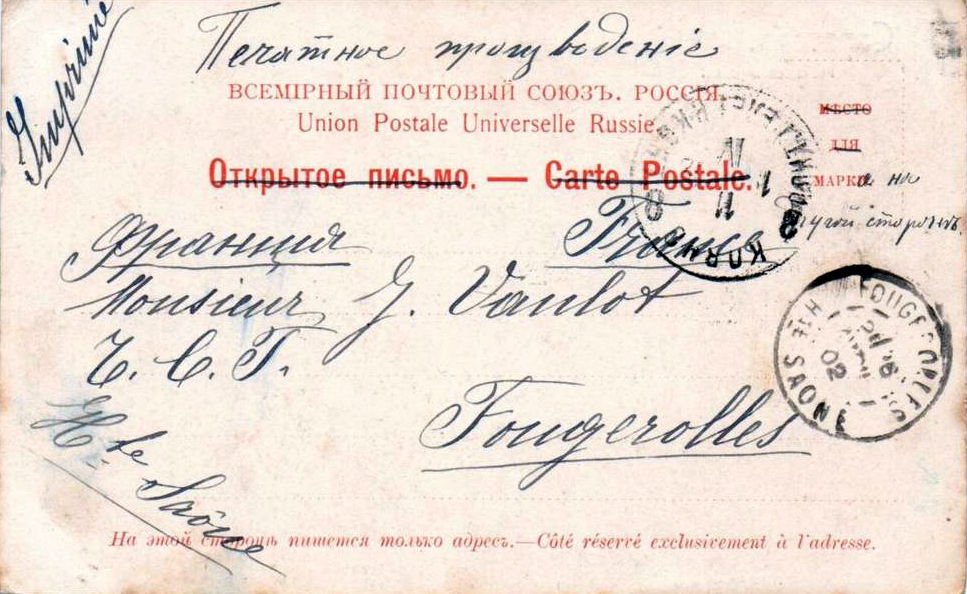 Imprimé
Печатное произведеніе
ВСЕМІРНЫЙ ПОЧТОВЫЙ СОЮЗЪ. РОССІЯ.
Union Postale Universelle Russie.
МѢСТО
ДЛЯ
МАРКИ
на
Открытое письмо. — Carte Postale.
сторонѣ.
Франція France
Monsieur J. Vaulot
T. C. F.
Fougerolles
Hte Saône
FOUGEROLLES
HTE SAONE
02
11
На этой сторонѣ пишется только адресъ.—Côté réservé exclusivement à l'adresse.